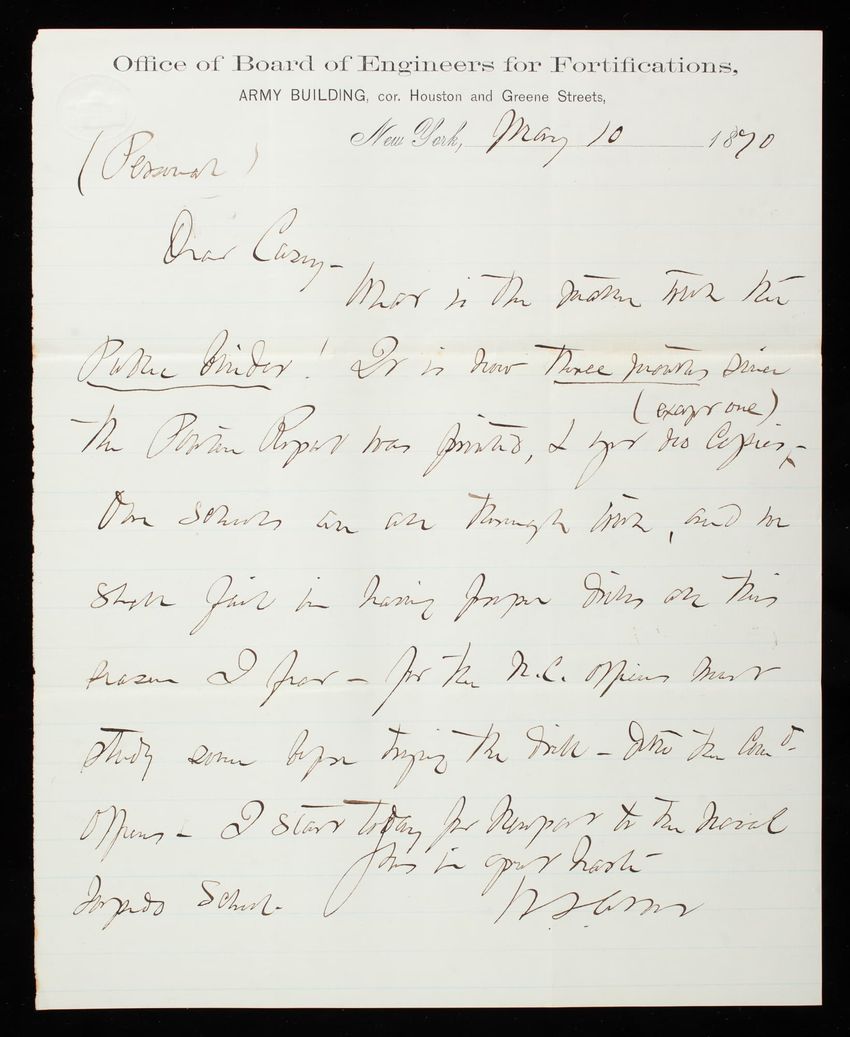 Office of Board of Engineers for Fortifications,
ARMY BUILDING, cor. Houston and Greene Streets,
New York, May 10 1870
(Personal)
Dear Casey -
What is the matter with the
Public Binder! It is now three months since
(except one)
the Ponton Report was printed, & yet no Copies, -
Our schools are all through with, and we
shall fail in having proper drills all this
season I fear - for the N.C. officers must
study some before trying the drill - ditto the Com'd.
Officers - I start today for Newport to the Naval
Yours in great haste
Torpedo School.